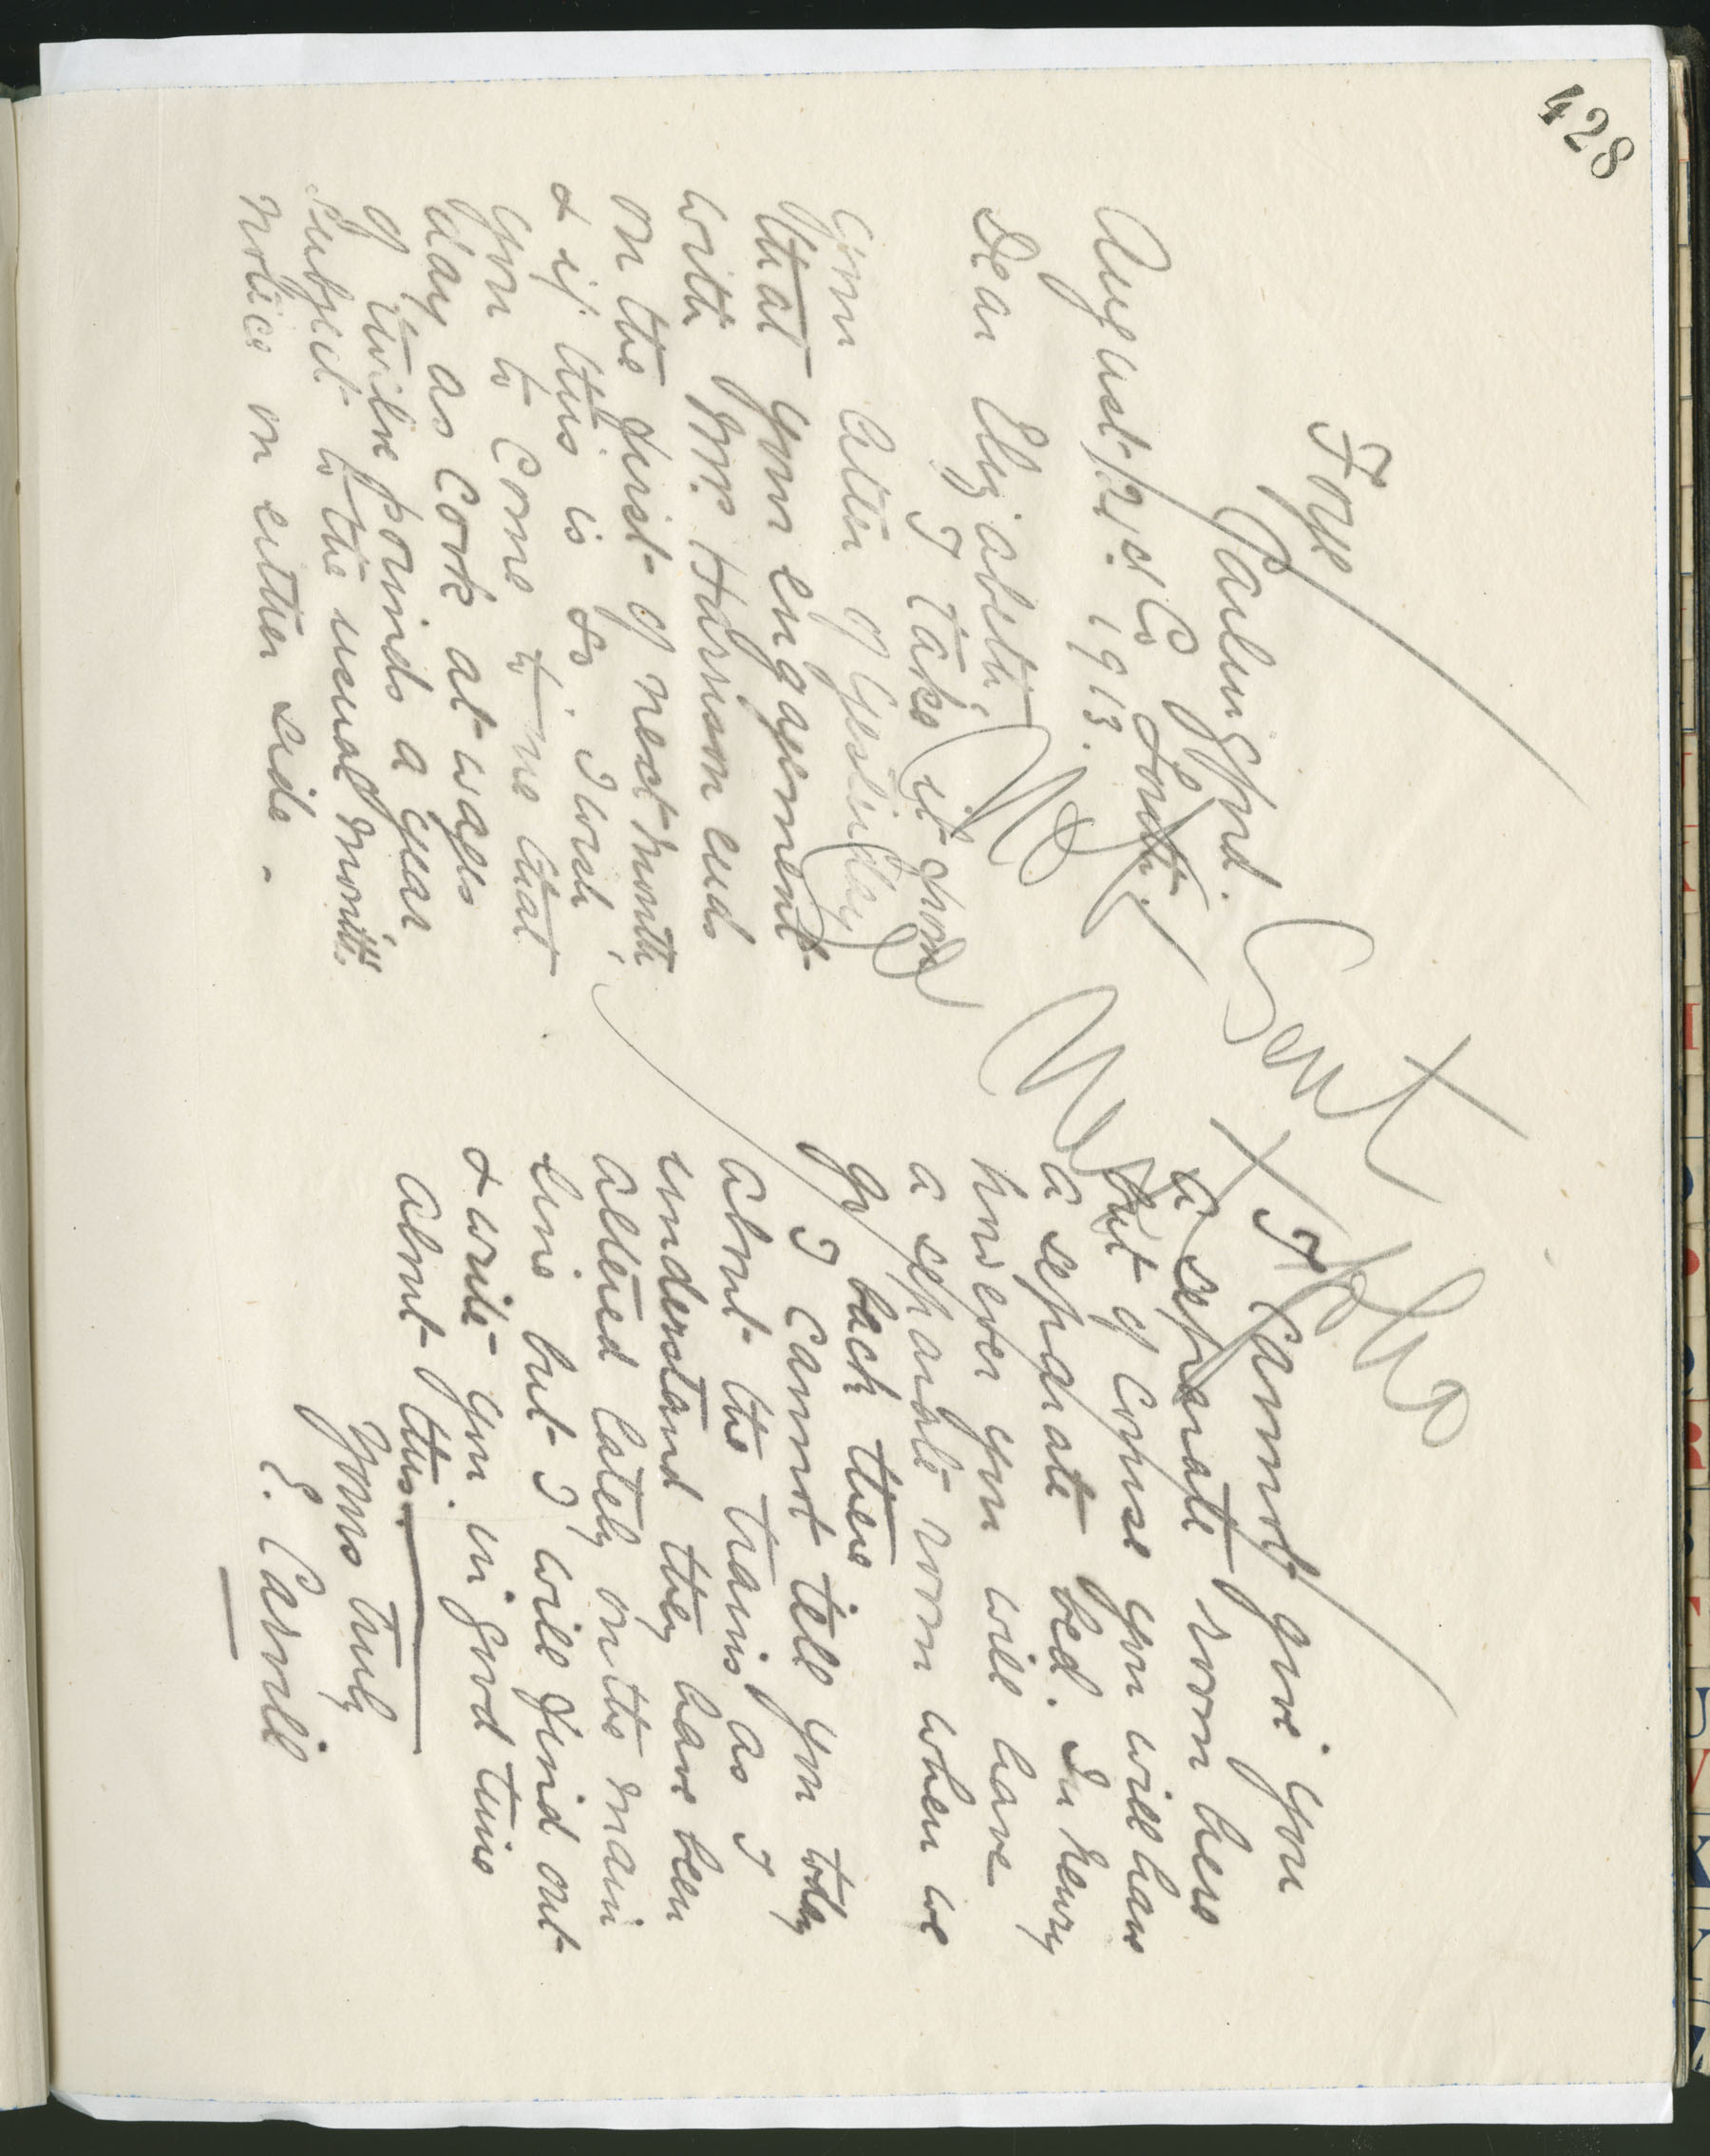 428
Foye
Ballingford.
Co Louth.
August 21st 1913.
Dear Elizabeth
I take it from
your letter of yesterday
that your engagement
with Mrs Harrison ends
on the first of next month
& if this is so, I wish
you to come to me that
day as Cook at wages
of twelve pounds a year
subject to the usual month's
notice on either side.
Sent 1/2
I cannot give you
a separate room here
but of course you will have
a separate bed. In Newry
however you will have
a separate room when we
go back there
I cannot tell you today
about the trains as I
understand they have been
altered lately on the main
line but I will find out
& write you in good time
about this.
Yours truly
E. Carvill